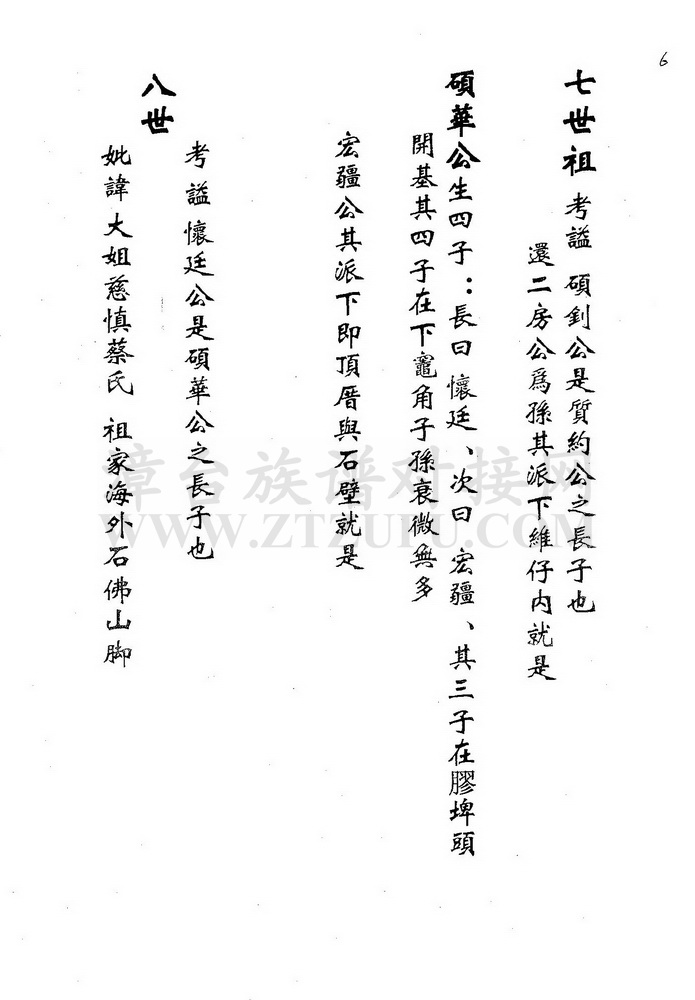 6
七世祖 考謚 碩釗公是質約公之長子也
還二房公爲孫其派下維仔内就是
碩華公生四子：長曰懷廷、次曰宏疆、其三子在膠埤頭
開基其四子在下竈角子孫衰微無多
宏疆公其派下即頂厝與石壁就是
八世
考謚懷廷公是碩華公之長子也
妣諱大姐慈慎蔡氏 祖家海外石佛山脚
章台族谱对接网
WWW.ZTZUPU.COM